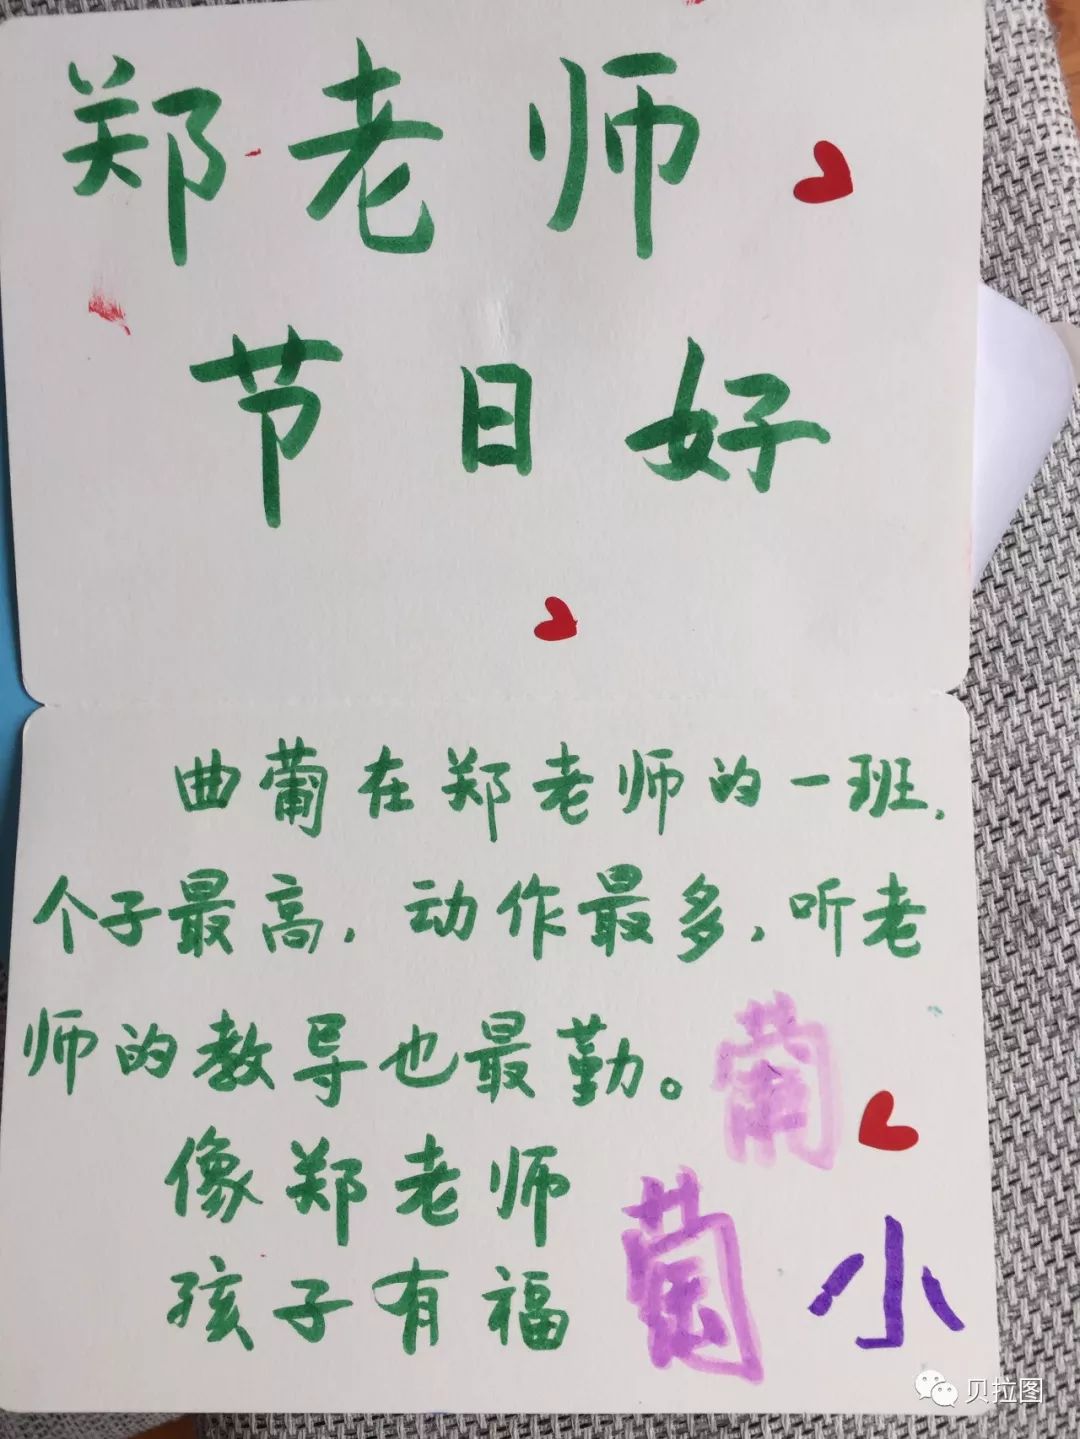 郑老师
节日好
曲蔔在郑老师的一班,
个子最高,动作最多,听老
师的教导也最勤。
像郑老师
孩子有福
小
贝拉图